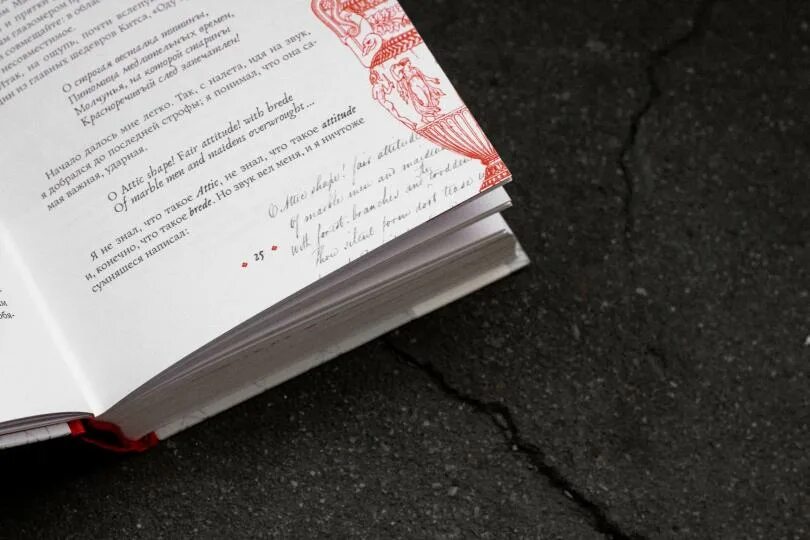 и прятки
глазомером пр
совмещайте: в обла
несовместимое.
Итак, на ощупь, почти вслепу
из главных шедевров Китса, «Оду
О строгая весталка тишины,
Питомица медлительных времен,
Молчунья, на которой старины
Красноречивый след запечатлен!
Начало далось мне легко. Так, с налета, идя на звук,
я добрался до последней строфы; я понимал, что она са-
мая важная, ударная.
O Attic shape! Fair attitude! with brede
Of marble men and maidens overwrought...
Я не знал, что такое Attic, не знал, что такое attitude
и, конечно, что такое brede. Но звук вел меня, и я ничтоже
сумняшеся написал:
O Attic shape! fair attitude
Of marble men and maidens
with forest-branches and the trodden
Thou silent form dost tease
25